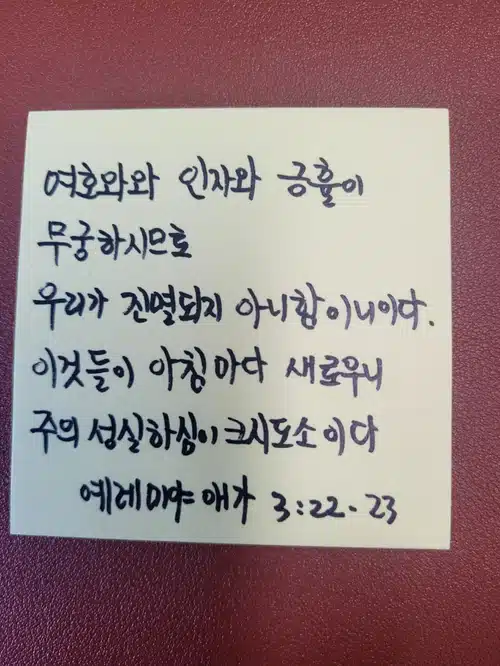 여호와와 인자와 긍휼이
무궁하시므로
우리가 진멸되지 아니함이니이다.
이것들이 아침마다 새로우니
주의 성실하심이 크시도소이다
예레미야 애가 3:22-23